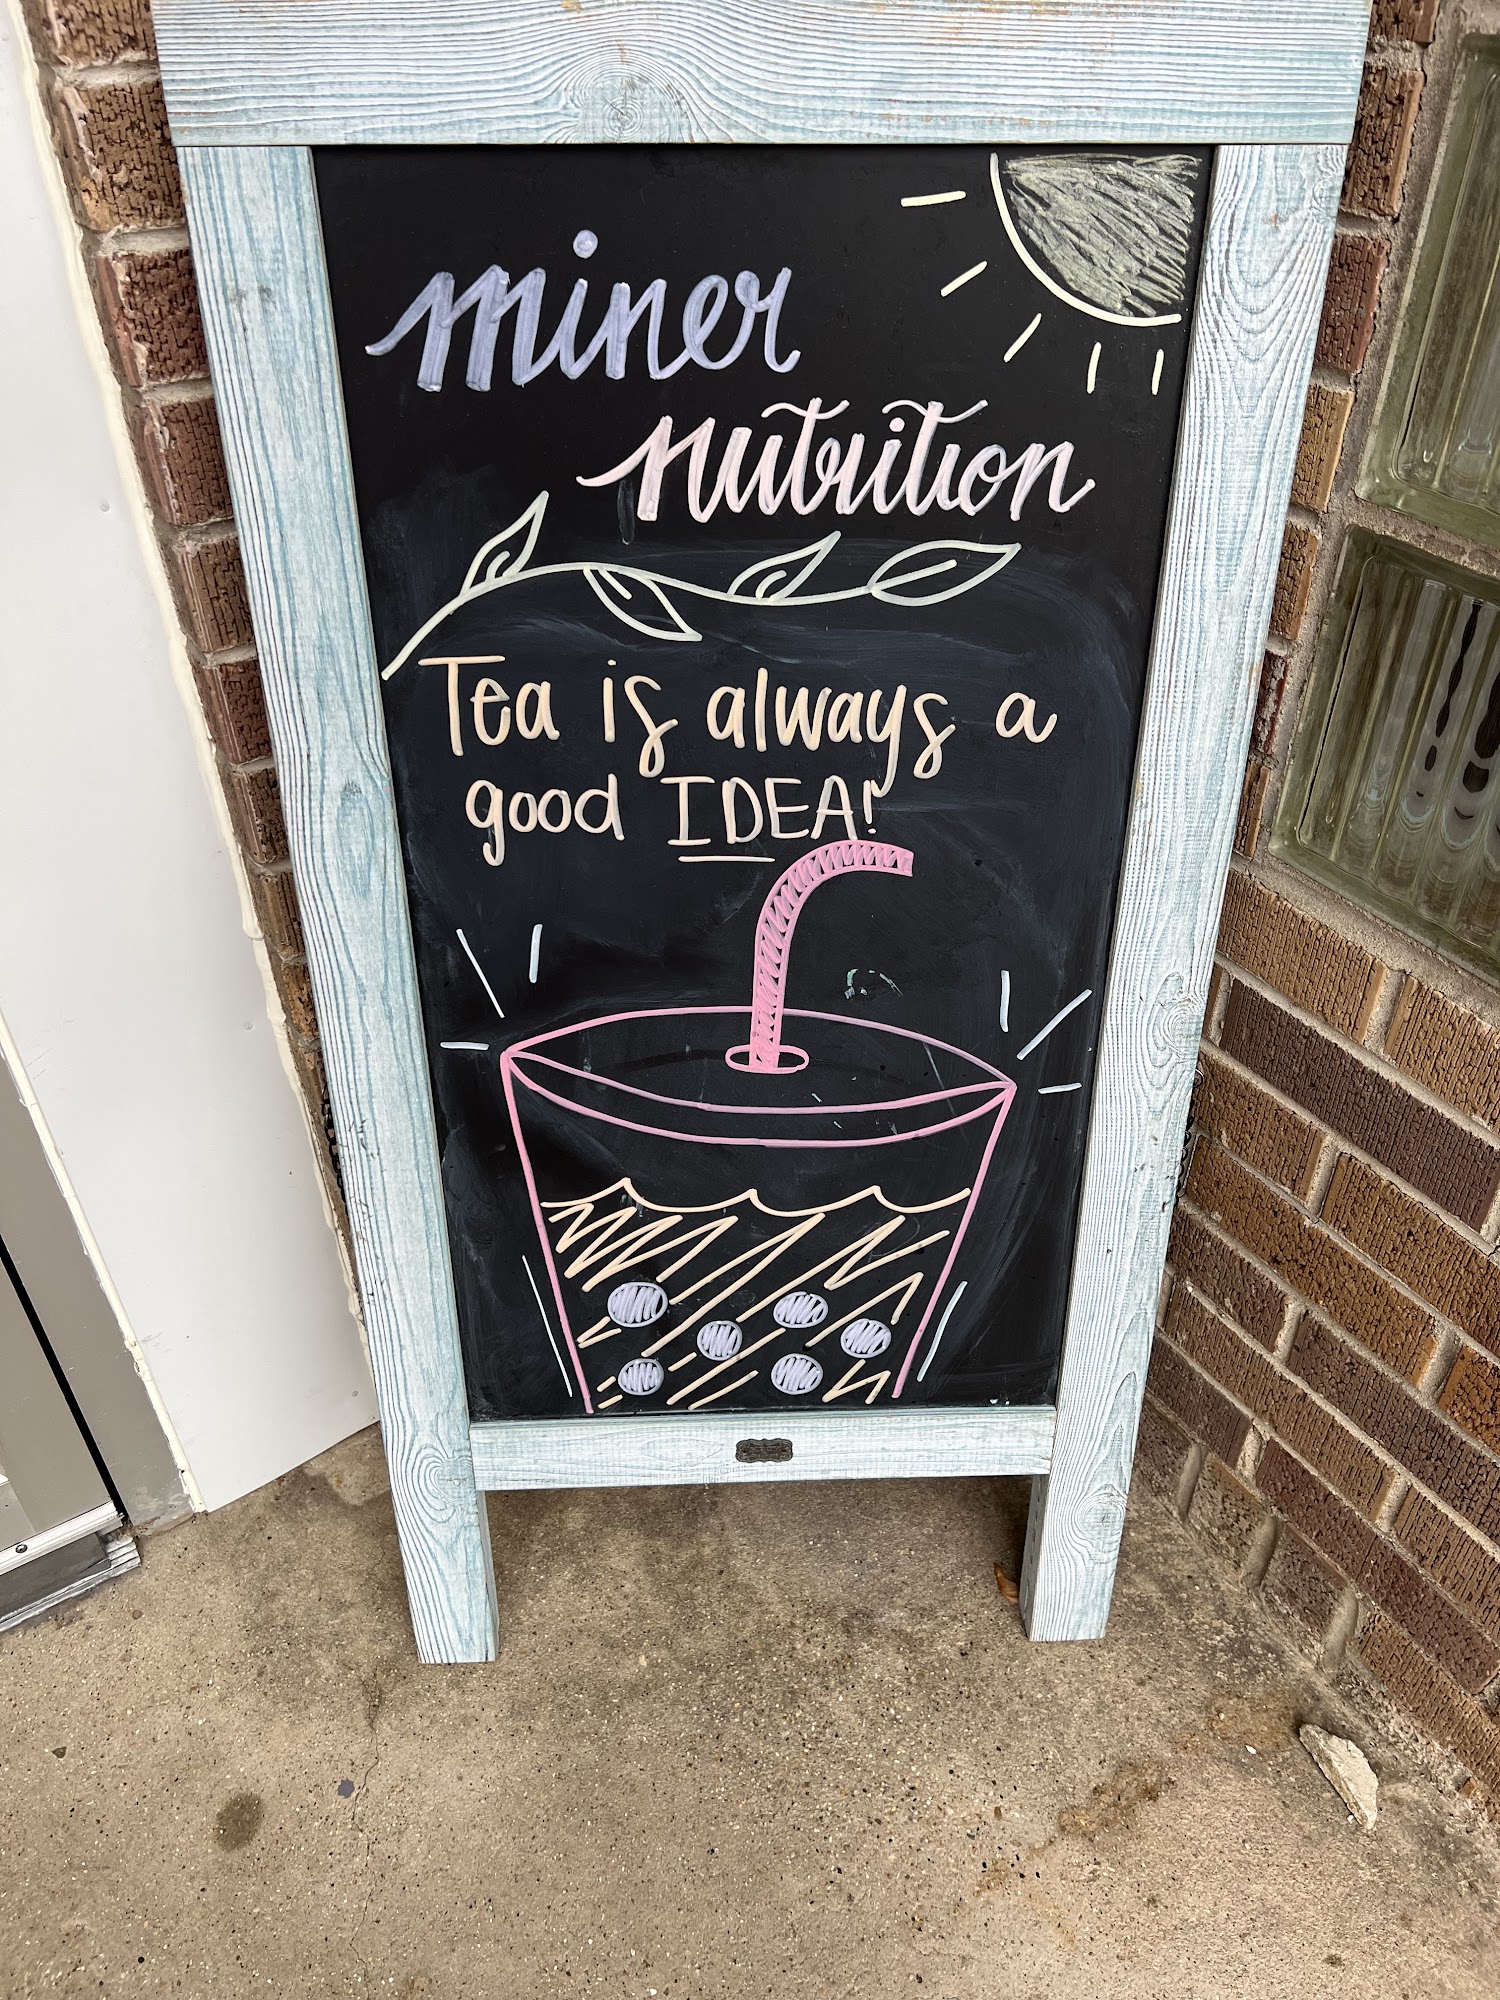 miner
nutrition
Tea is always a
good IDEA!